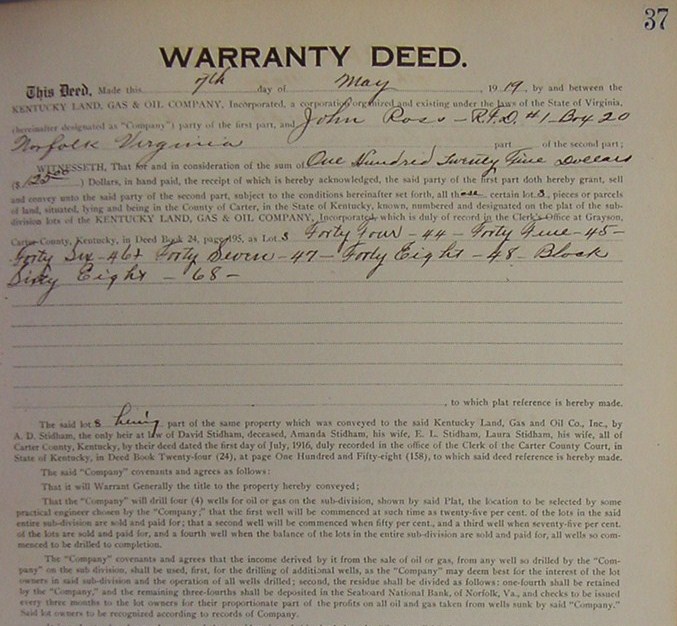 37
WARRANTY DEED.
This Deed, Made this 7th day of May, 1919, by and between the
KENTUCKY LAND, GAS & OIL COMPANY, Incorporated, a corporation organized and existing under the laws of the State of Virginia,
(hereinafter designated as "Company") party of the first part, and John Ross - R.F.D. #1 - Box 20
Norfolk Virginia part of the second part;
WITNESSETH, That for and in consideration of the sum of One Hundred Twenty Five Dollars
($ 125.00 ) Dollars, in hand paid, the receipt of which is hereby acknowledged, the said party of the first part doth hereby grant, sell
and convey unto the said party of the second part, subject to the conditions hereinafter set forth, all those certain lot s, pieces or parcels
of land, situated, lying and being in the County of Carter, in the State of Kentucky, known, numbered and designated on the plat of the sub-
division lots of the KENTUCKY LAND, GAS & OIL COMPANY, Incorporated, which is duly of record in the Clerk's Office at Grayson,
Carter County, Kentucky, in Deed Book 24, page 195, as Lot s Forty Four - 44 - Forty Five - 45 -
Forty Six - 46 & Forty Seven - 47 - Forty Eight - 48 - Block
Sixty Eight - 68 -
, to which plat reference is hereby made.
The said lot s being part of the same property which was conveyed to the said Kentucky Land, Gas and Oil Co., Inc., by
A. D. Stidham, the only heir at law of David Stidham, deceased, Amanda Stidham, his wife, E. L. Stidham, Laura Stidham, his wife, all of
Carter County, Kentucky, by their deed dated the first day of July, 1916, duly recorded in the office of the Clerk of the Carter County Court, in
State of Kentucky, in Deed Book Twenty-four (24), at page One Hundred and Fifty-eight (158), to which said deed reference is hereby made.
The said "Company" covenants and agrees as follows:
That it will Warrant Generally the title to the property hereby conveyed;
That the "Company" will drill four (4) wells for oil or gas on the sub-division, shown by said Plat, the location to be selected by some
practical engineer chosen by the "Company;" that the first well will be commenced at such time as twenty-five per cent. of the lots in the said
entire sub-division are sold and paid for; that a second well will be commenced when fifty per cent., and a third well when seventy-five per cent.
of the lots are sold and paid for, and a fourth well when the balance of the lots in the entire sub-division are sold and paid for, all wells so com-
menced to be drilled to completion.
The "Company" covenants and agrees that the income derived by it from the sale of oil or gas, from any well so drilled by the "Com-
pany" on the sub division, shall be used, first, for the drilling of additional wells, as the "Company" may deem best for the interest of the lot
owners in said sub-division and the operation of all wells drilled; second, the residue shall be divided as follows: one-fourth shall be retained
by the "Company," and the remaining three-fourths shall be deposited in the Seaboard National Bank, of Norfolk, Va., and checks to be issued
every three months to the lot owners for their proportionate part of the profits on all oil and gas taken from wells sunk by said "Company."
Said lot owners to be recognized according to records of Company.